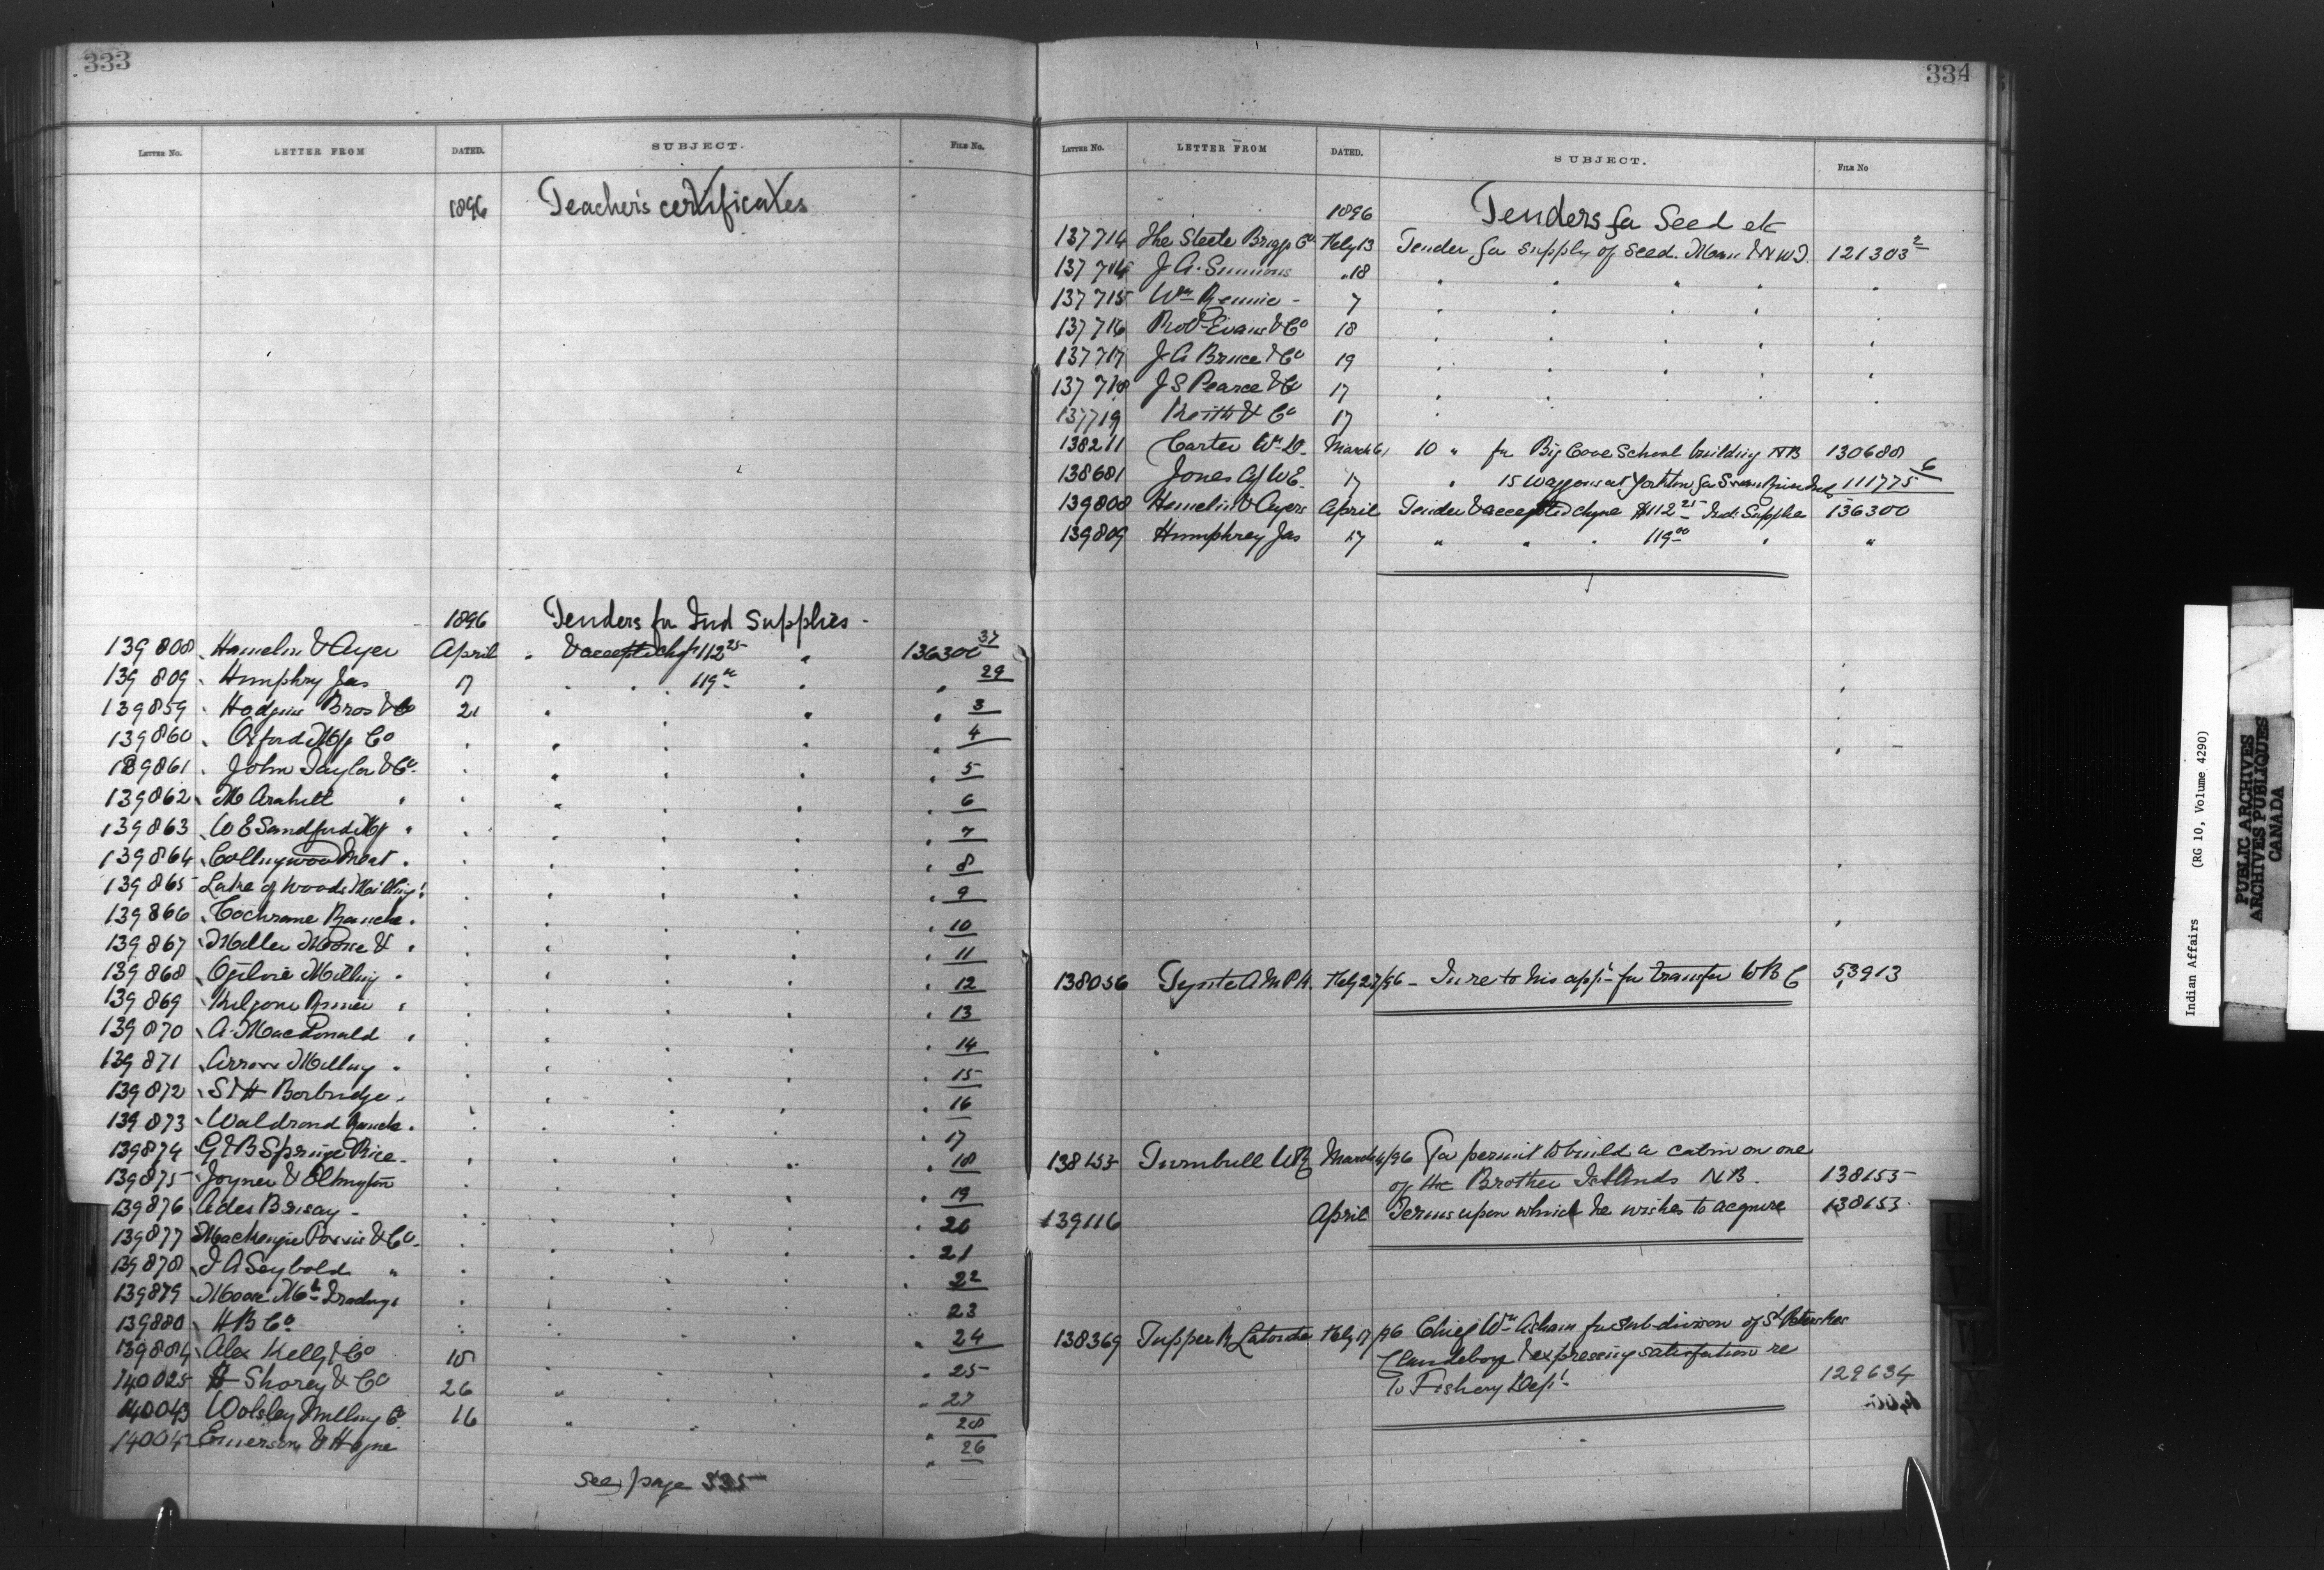 333
LETTER No. LETTER FROM DATED. SUBJECT. FILE No.
1896 Teacher's certificates
1896 Tenders for Ind Supplies -
139808 Hamelin & Ayer April " & accepted chq 112 25 " 136300 37
139809 Humphry Jas 17 " " 119 00 " " 29
139859 Hodgins Bros & Co 21 " " " " 3
139860 Oxford Mfg Co " " " " " 4
139861 John Taylor & Co " " " " " 5
139862 M " " " " " " 6
139863 W E Sandford Mfg " " " " " " 7
139864 Collingwood Meat " " " " " " 8
139865 Lake of Woods Milling " " " " " " 9
139866 Cochrane Ranche " " " " " " 10
139867 Miller Morse & " " " " " " 11
139868 Ogilvie Milling " " " " " " 12
139869 " " " " " " 13
139870 A. MacDonald " " " " " " 14
139871 Arrow Milling " " " " " " 15
139872 S & H Borbridge " " " " " 16
139873 Waldrond Ranch " " " " " " 17
139874 G & B Spring Rice " " " " " 18
139875 Joyner & Elkington " " " " " 19
139876 A des Brisay - " " " " " 20
139877 MacKenzie & Co " " " " " 21
139878 J A Seybold " " " " " " 22
139879 Moose Mtn Trading " " " " " " 23
139880 H B Co " " " " " 24
139884 Alex Kelly & Co 18 " " " " 25
140025 H Shorey & Co 26 " " " " 27
140043 Wolsley Milling Co 16 " " " " 28
14004 Emerson & Hague " 26
See page 535
334
LETTER No. LETTER FROM DATED. SUBJECT. FILE No
1896 Tenders for Seed etc
137714 The Steele Briggs Co Feby 13 Tender for supply of seed. Man & NWT. 121303 2
137714 J A. Simmons " 18 " " " " " "
137715 Wm Rennie - 7 " " " " "
137716 Robt Evans & Co 18 " " " " "
137717 J A Bruce & Co 19 " " " " "
137718 J S Pearce & Co 17 " " " " "
137719 Keith & Co 17 "
138211 Carter Wm D. March 6 10 " for Big Cove School building NB 130688
138681 Jones W E. 17 " 15 Waggons at Yorkton for 111775 6
139808 Hamelin & Ayers April Tender & accepted chque $112 25 Ind: Supplies 136300
139809 Humphrey Jas 17 " " " 119 00 " "
138056 Tyste A M P H. Feby 27/96 - In re to his appn for transfer to B C 53913
138153 Turnbull W R March 4/96 For permit to build a cabin on one
of the Brother Islands N.B. 138155
139116 April Terms upon which he wishes to acquire 138153
138369 Tupper R Latouche Feby 17/96 Chief Wm Asham for sub-division of St Peters Res
Clandeboye & expressing satisfaction re
to Fishery Dept. 129634
Indian Affairs (RG 10, Volume 4290)
PUBLIC ARCHIVES
ARCHIVES PUBLIQUES
CANADA